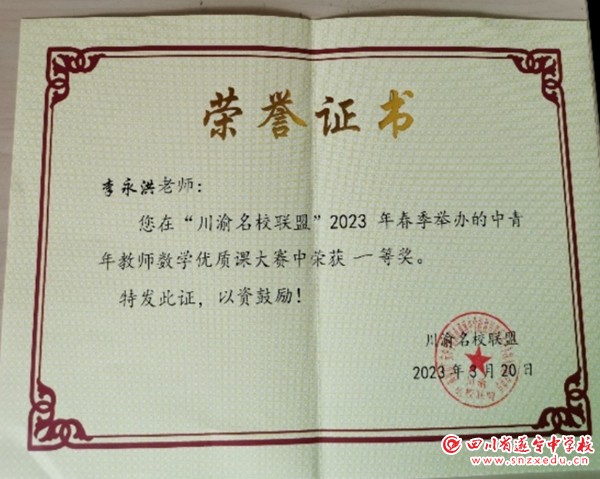 荣誉证书
李永洪老师：
您在“川渝名校联盟”2023 年春季举办的中青
年教师数学优质课大赛中荣获 一等奖。
特发此证，以资鼓励！
川渝名校联盟
2023 年 3 月 20 日
四川省遂宁中学校
www.snzxedu.cn